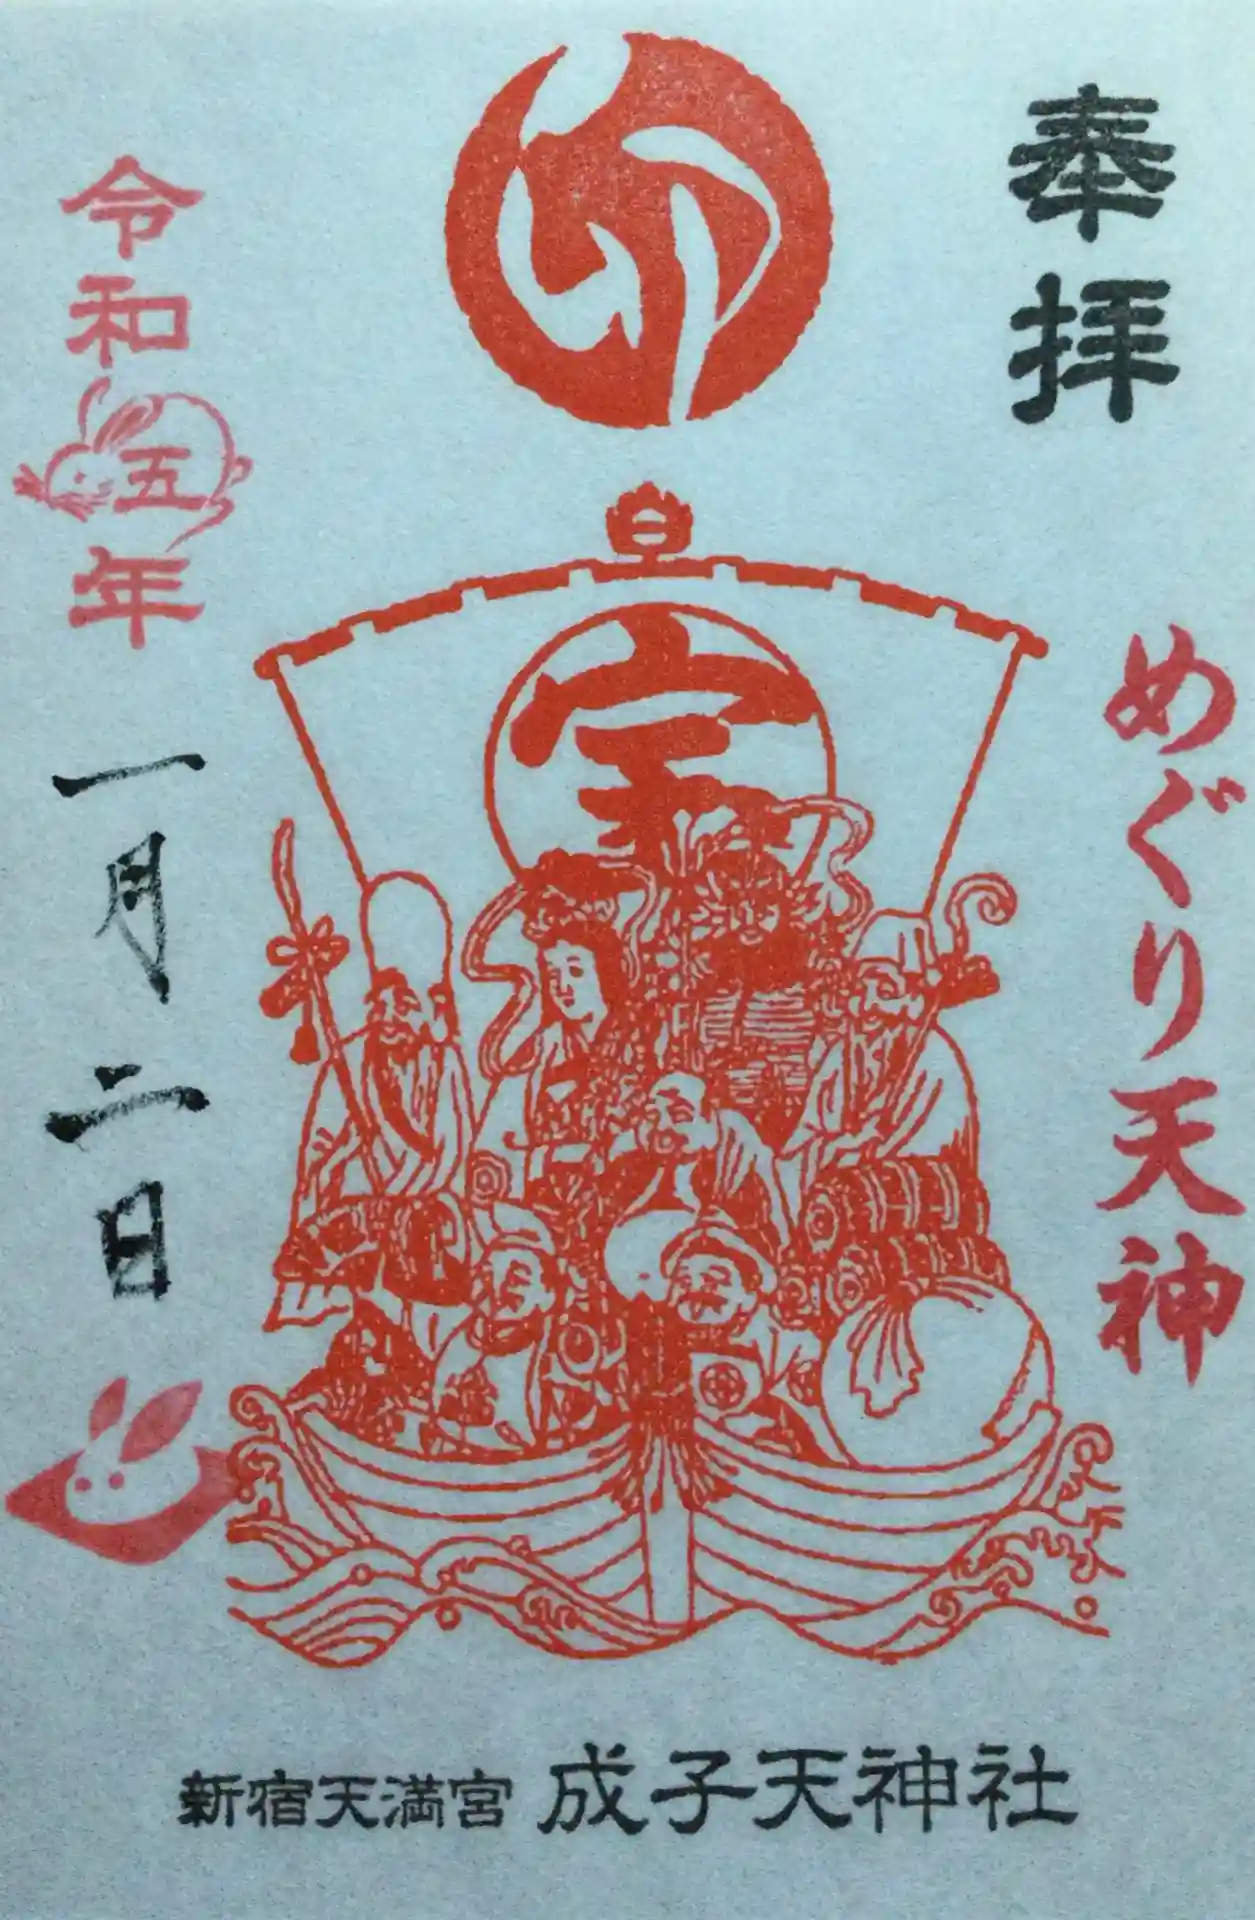 奉拝
めぐり天神
宝
令和五年
一月二日
新宿天満宮 成子天神社